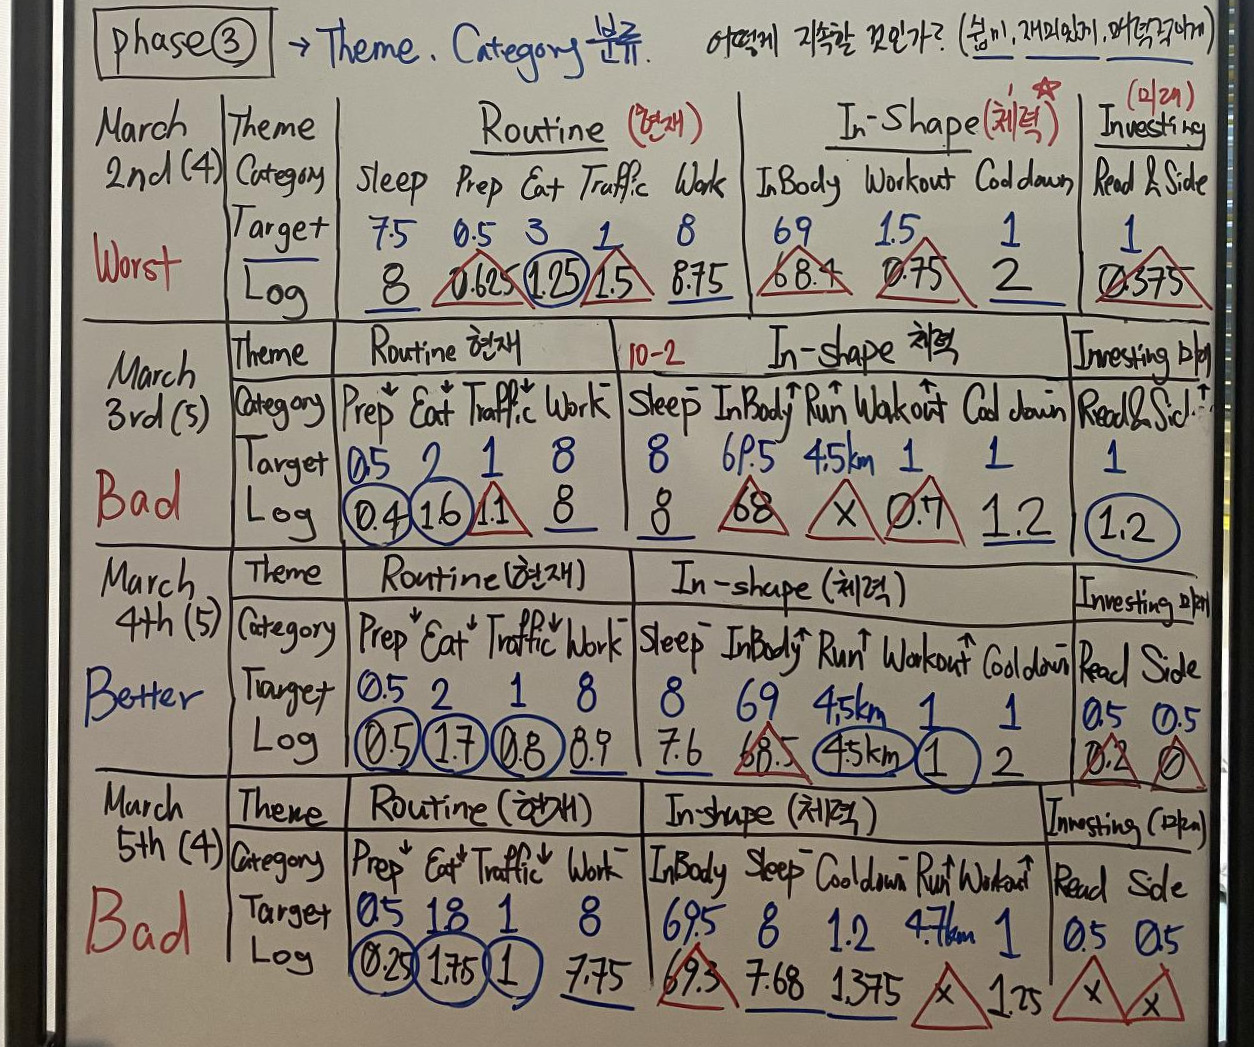 phase③ → Theme. Category 분류. 어떻게 지속할 것인가? (쉽게, 재미있게, 매력적이게)
March 2nd (4)
Worst
Theme Routine (현재) In-Shape (체력) ☆ Investing (미래)
Category Sleep Prep Eat Traffic Work InBody Workout Cooldown Read & Side
Target 7.5 0.5 3 1 8 69 1.5 1 1
Log 8 0.625 1.25 1.5 8.75 68.4 0.75 2 0.375
March 3rd (5)
Bad
Theme Routine 현재 10-2 In-shape 체력 Investing 미래
Category Prep↓ Eat↓ Traffic↓ Work- Sleep- InBody↑ Run↑ Wokout↑ Cool down- Read&Sid↑
Target 0.5 2 1 8 8 69.5 4.5km 1 1 1
Log 0.4 1.6 1.1 8 8 68 x 0.7 1.2 1.2
March 4th (5)
Better
Theme Routine (현재) In-shape (체력) Investing 미래
Category Prep↓ Eat↓ Traffic↓ Work- Sleep- InBody↑ Run↑ Workout↑ Cooldown- Read Side
Target 0.5 2 1 8 8 69 4.5km 1 1 0.5 0.5
Log 0.5 1.7 0.8 8.9 7.6 68.5 4.5km 1 2 0.2 0
March 5th (4)
Bad
Theme Routine (현재) In-shape (체력) Investing (미래)
Category Prep↓ Eat↓ Traffic↓ Work- InBody Sleep- Cooldown- Run↑ Workout↑ Read Side
Target 0.5 1.8 1 8 69.5 8 1.2 4.7km 1 0.5 0.5
Log 0.25 1.75 1 7.75 69.3 7.68 1.375 x 1.25 x x